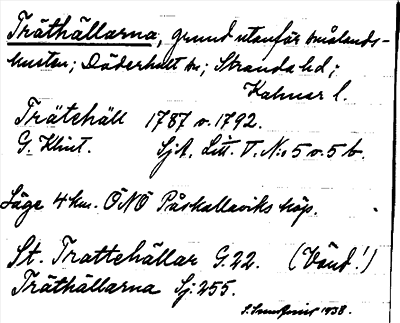 Träthällarna, grund utanför Smålands-
kusten; Döderhult sn; Stranda hd;
Kalmar l.
Trätehäll 1787 o. 1792.
G. Klint. Sjk. Litt. V. N:o 5 o. 5 b.
Läge 4 km. ÖNÖ Påskallaviks köp.
St. Trattehällar G. 22. (Vänd!)
Träthällarna Sj. 255.
1938.